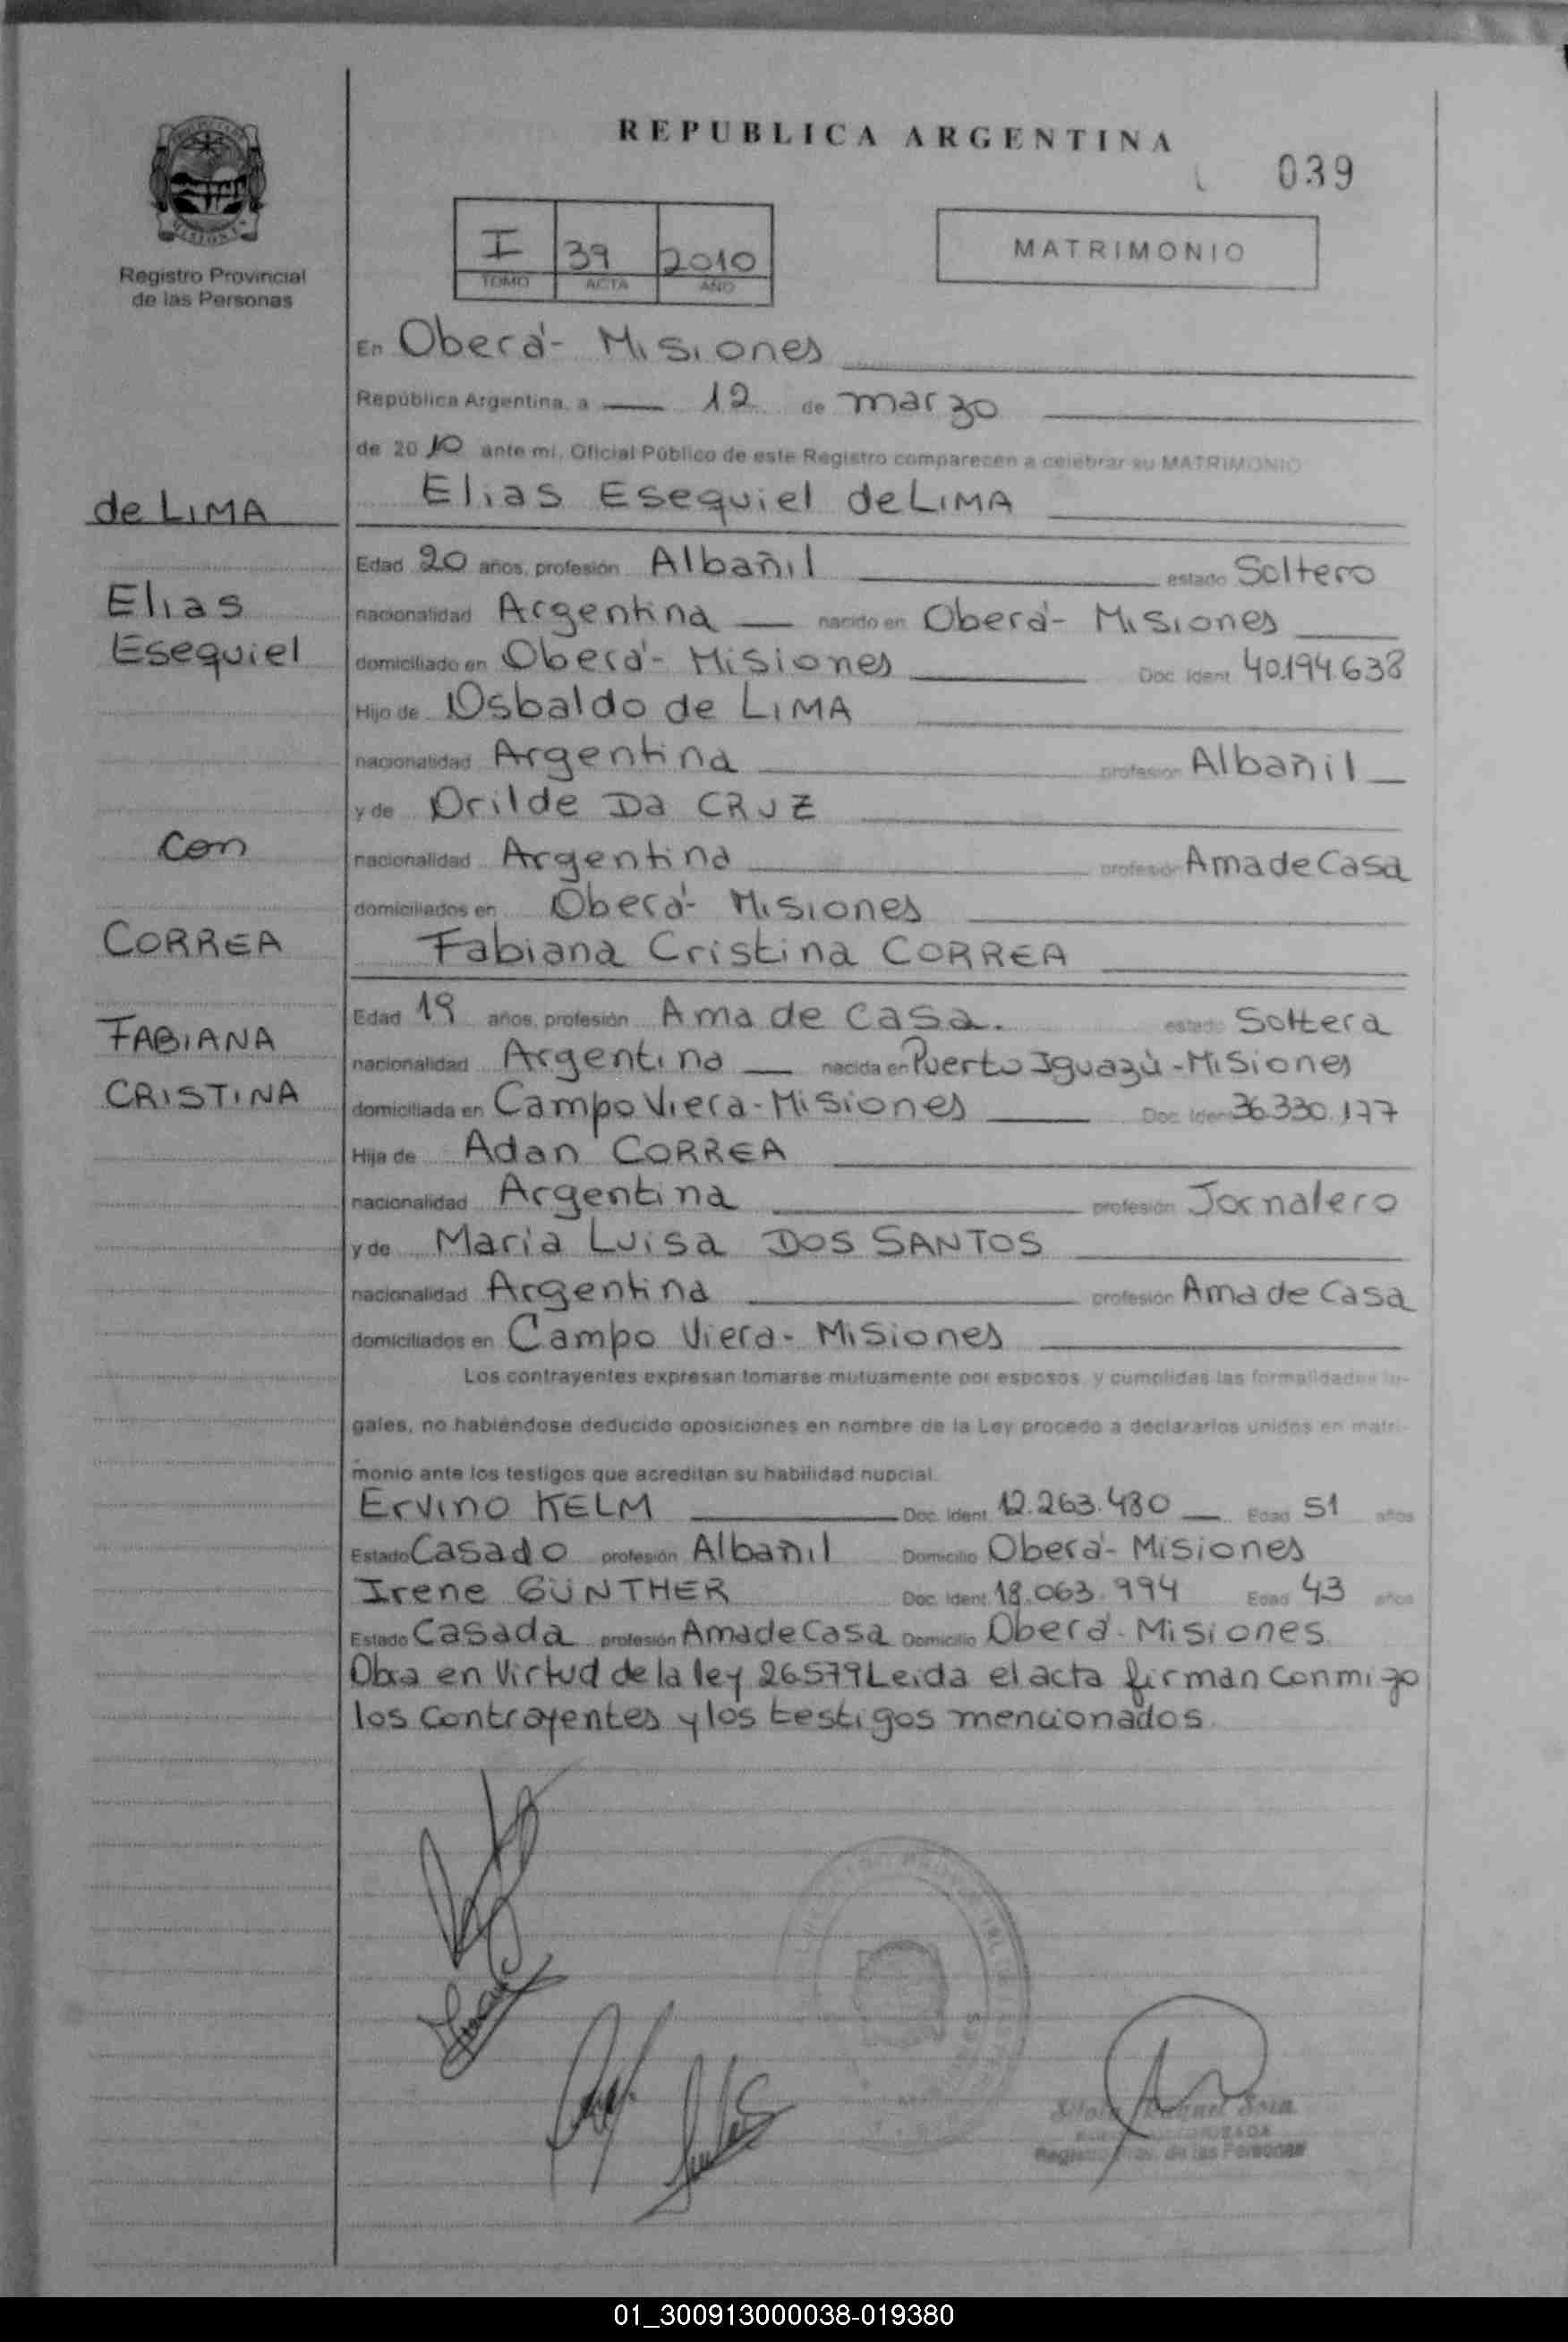 REPUBLICA ARGENTINA
039
Registro Provincial
de las Personas
I 39 2010
TOMO ACTA AÑO
MATRIMONIO
En Oberá - Misiones
República Argentina, a 12 de marzo
de 2010 ante mí, Oficial Público de este Registro comparecen a celebrar su MATRIMONIO
de LIMA
Elias Esequiel de LIMA
Edad 20 años, profesión Albañil estado Soltero
Elias
nacionalidad Argentina nacido en Oberá - Misiones
Esequiel
domiciliado en Oberá - Misiones Doc. Ident. 40.194.638
Hijo de Osbaldo de LIMA
nacionalidad Argentina profesión Albañil
y de Orilde Da CRUZ
con
nacionalidad Argentina profesión Ama de Casa
domiciliados en Oberá - Misiones
CORREA
Fabiana Cristina CORREA
Edad 19 años, profesión Ama de Casa. estado Soltera
FABIANA
nacionalidad Argentina nacida en Puerto Iguazú - Misiones
CRISTINA
domiciliada en Campo Viera - Misiones Doc. Ident. 36.330.177
Hija de Adan CORREA
nacionalidad Argentina profesión Jornalero
y de Maria Luisa DOS SANTOS
nacionalidad Argentina profesión Ama de Casa
domiciliados en Campo Viera - Misiones
Los contrayentes expresan tomarse mutuamente por esposos, y cumplidas las formalidades le-
gales, no habiéndose deducido oposiciones en nombre de la Ley procedo a declararlos unidos en matri-
monio ante los testigos que acreditan su habilidad nupcial.
Ervino KELM Doc. Ident. 12.263.480 Edad 51 años
Estado Casado profesión Albañil Domicilio Oberá - Misiones
Irene GÜNTHER Doc. Ident. 18.063.994 Edad 43 años
Estado Casada profesión Ama de Casa Domicilio Oberá - Misiones
Obra en Virtud de la ley 26579 Leida el acta firman conmigo
los contrayentes y los testigos mencionados.
Registro Prov. de las Personas
01_300913000038-019380